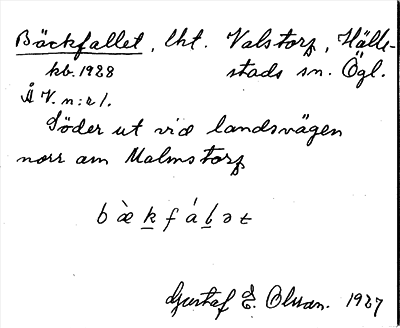 Bäckfallet, lht. Valstorp, Hälle-
kb. 1928 stads sn. Ögl.
Å V. n:r 1.
Söder ut vid landsvägen
norr om Malmstorp
b æ̀ k f á l ə t
Gustaf E. Olsson. 1927